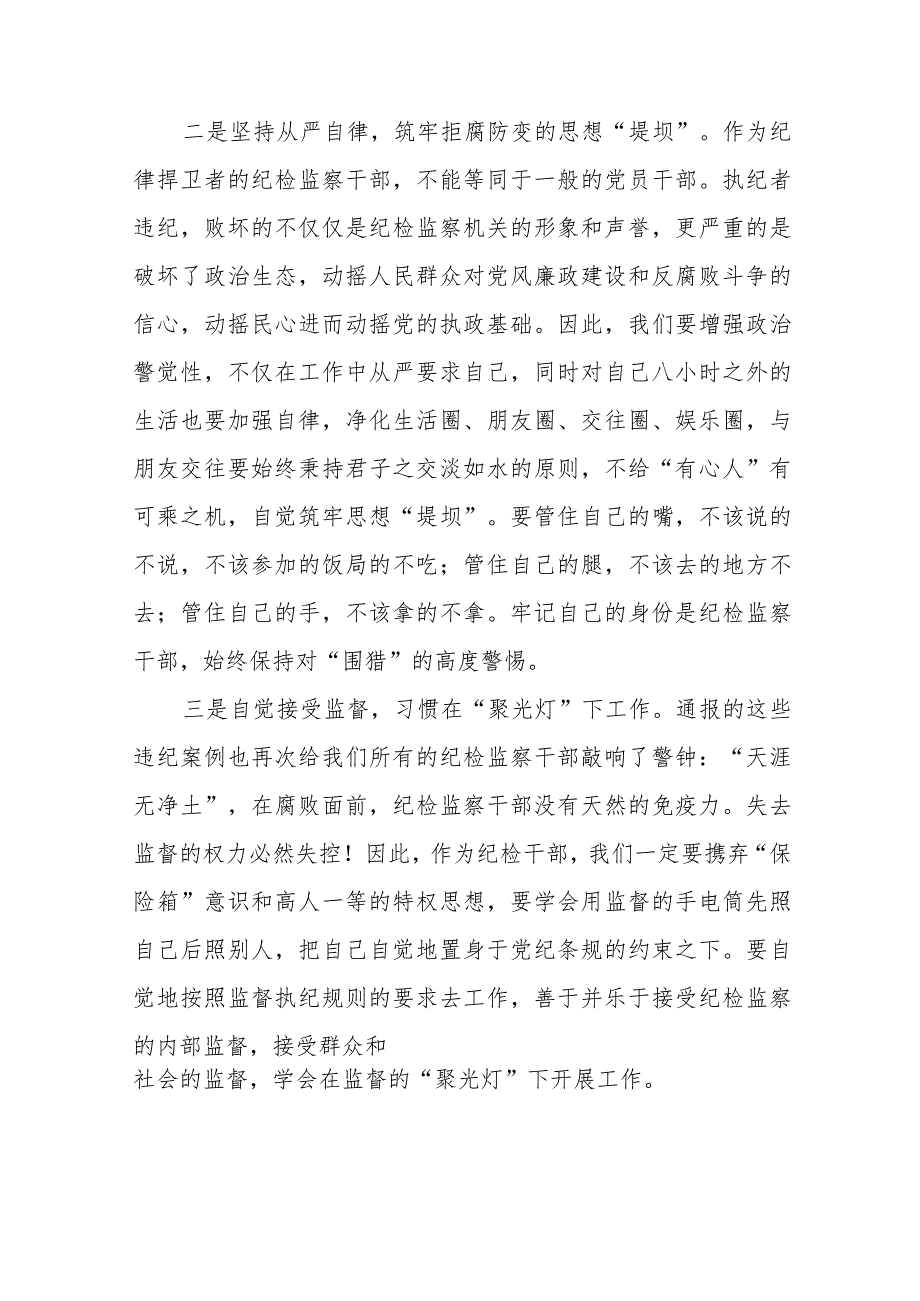 二是坚持从严自律，筑牢拒腐防变的思想“堤坝”。作为纪
律捍卫者的纪检监察干部，不能等同于一般的党员干部。执纪者
违纪，败坏的不仅仅是纪检监察机关的形象和声誉，更严重的是
破坏了政治生态，动摇人民群众对党风廉政建设和反腐败斗争的
信心，动摇民心进而动摇党的执政基础。因此，我们要增强政治
警觉性，不仅在工作中从严要求自己，同时对自己八小时之外的
生活也要加强自律，净化生活圈、朋友圈、交往圈、娱乐圈，与
朋友交往要始终秉持君子之交淡如水的原则，不给“有心人”有
可乘之机，自觉筑牢思想“堤坝”。要管住自己的嘴，不该说的
不说，不该参加的饭局的不吃；管住自己的腿，不该去的地方不
去；管住自己的手，不该拿的不拿。牢记自己的身份是纪检监察
干部，始终保持对“围猎”的高度警惕。
三是自觉接受监督，习惯在“聚光灯”下工作。通报的这些
违纪案例也再次给我们所有的纪检监察干部敲响了警钟：“天涯
无净土”，在腐败面前，纪检监察干部没有天然的免疫力。失去
监督的权力必然失控！因此，作为纪检干部，我们一定要携弃“保
险箱”意识和高人一等的特权思想，要学会用监督的手电筒先照
自己后照别人，把自己自觉地置身于党纪条规的约束之下。要自
觉地按照监督执纪规则的要求去工作，善于并乐于接受纪检监察
的内部监督，接受群众和
社会的监督，学会在监督的“聚光灯”下开展工作。